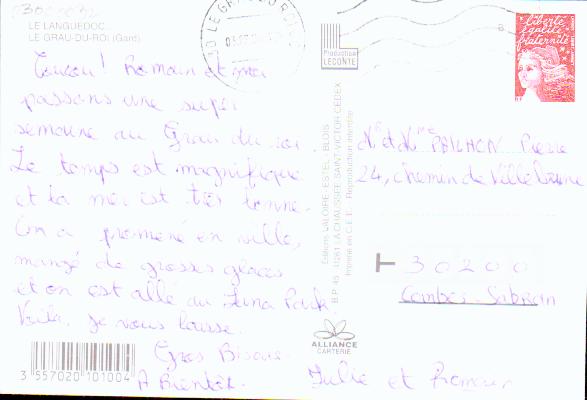 LE LANGUEDOC
LE GRAU-DU-ROI (Gard)
Coucou! Romain et moi
passons une super
semaine au Grau du roi.
Le temps est magnifique
et la mer est très bonne.
On a promené en ville,
mangé de grosses glaces
et on est allé au Luna Park.
Voilà, je vous laisse.
Gros Bisous.
A Bientôt.
Julie et Romain
3 557020 101004
Production
LECONTE
Editions VALOIRE-ESTEL - BLOIS
B.P. 41261 LA CHAUSSEE SAINT-VICTOR CEDEX
Imprimé en C.E.E. - Reproduction interdite
ALLIANCE
CARTERIE
LE GRAU DU ROI
liberté
égalité
fraternité
RF
Mr et Mme Pierre
24, chemin de
30200
Combes Sabran